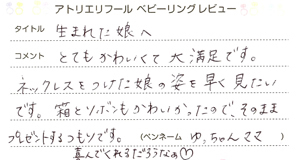 アトリエリフール ベビーリングレビュー
タイトル 生まれた娘へ
コメント とてもかわいくて大満足です。
ネックレスをつけた娘の姿を早く見たい
です。箱とリボンもかわいかったので、そのまま
プレゼントするつもりです。 (ペンネーム ゆっちゃんママ )
喜んでくれるだろうなぁ♡